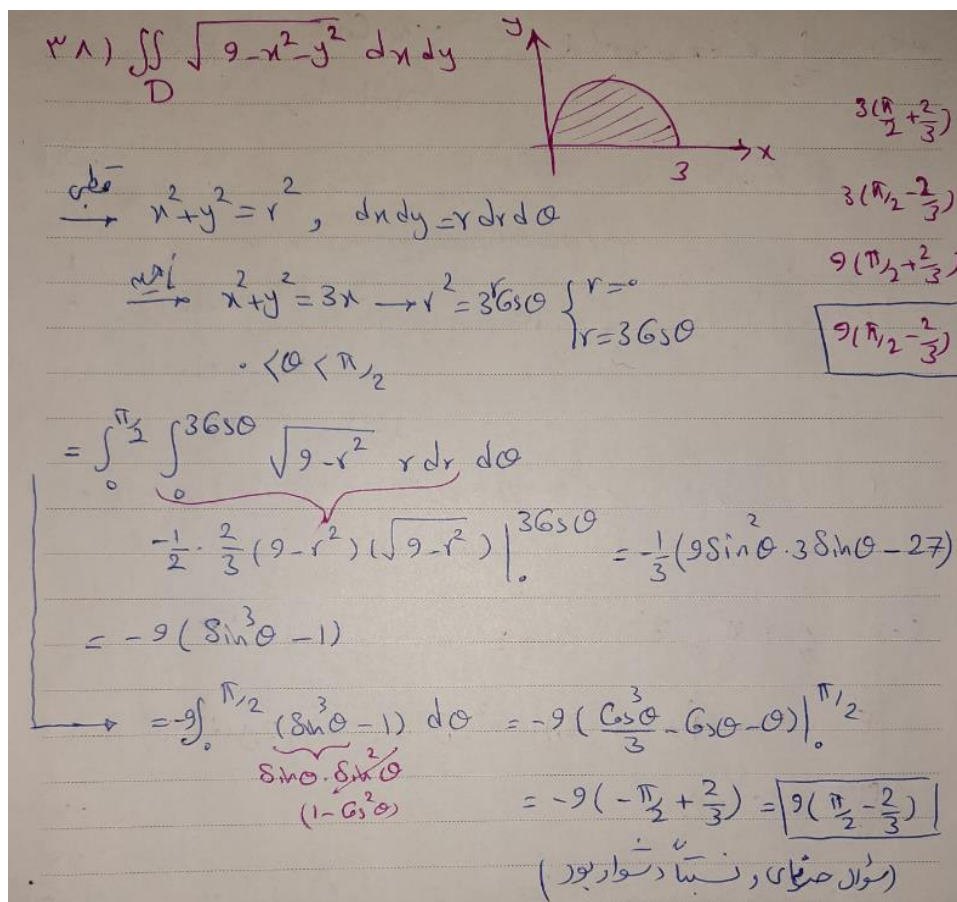 ۳۸) ∬_D √(9-x²-y²) dx dy
y
x
3
3(π/2 + 2/3)
3(π/2 - 2/3)
9(π/2 + 2/3)
9(π/2 - 2/3)
قطبی → x²+y²=r² , dxdy=rdrdθ
→ x²+y²=3x → r²=3rCosθ { r=0
r=3Cosθ
0<θ<π/2
= ∫₀^(π/2) ∫₀^(3Cosθ) √(9-r²) rdr dθ
-1/2 · 2/3 (9-r²)(√(9-r²)) |₀^(3Cosθ) = -1/3 (9Sin²θ·3Sinθ-27)
= -9(Sin³θ-1)
→ = -9∫₀^(π/2) (Sin³θ-1) dθ = -9(Cos³θ/3 - Cosθ - θ)|₀^(π/2)
Sinθ·Sin²θ
(1-Cos²θ)
= -9(-π/2 + 2/3) = 9(π/2 - 2/3)
(سؤال حرفه‌ای و نسبتاً دشوار بود)